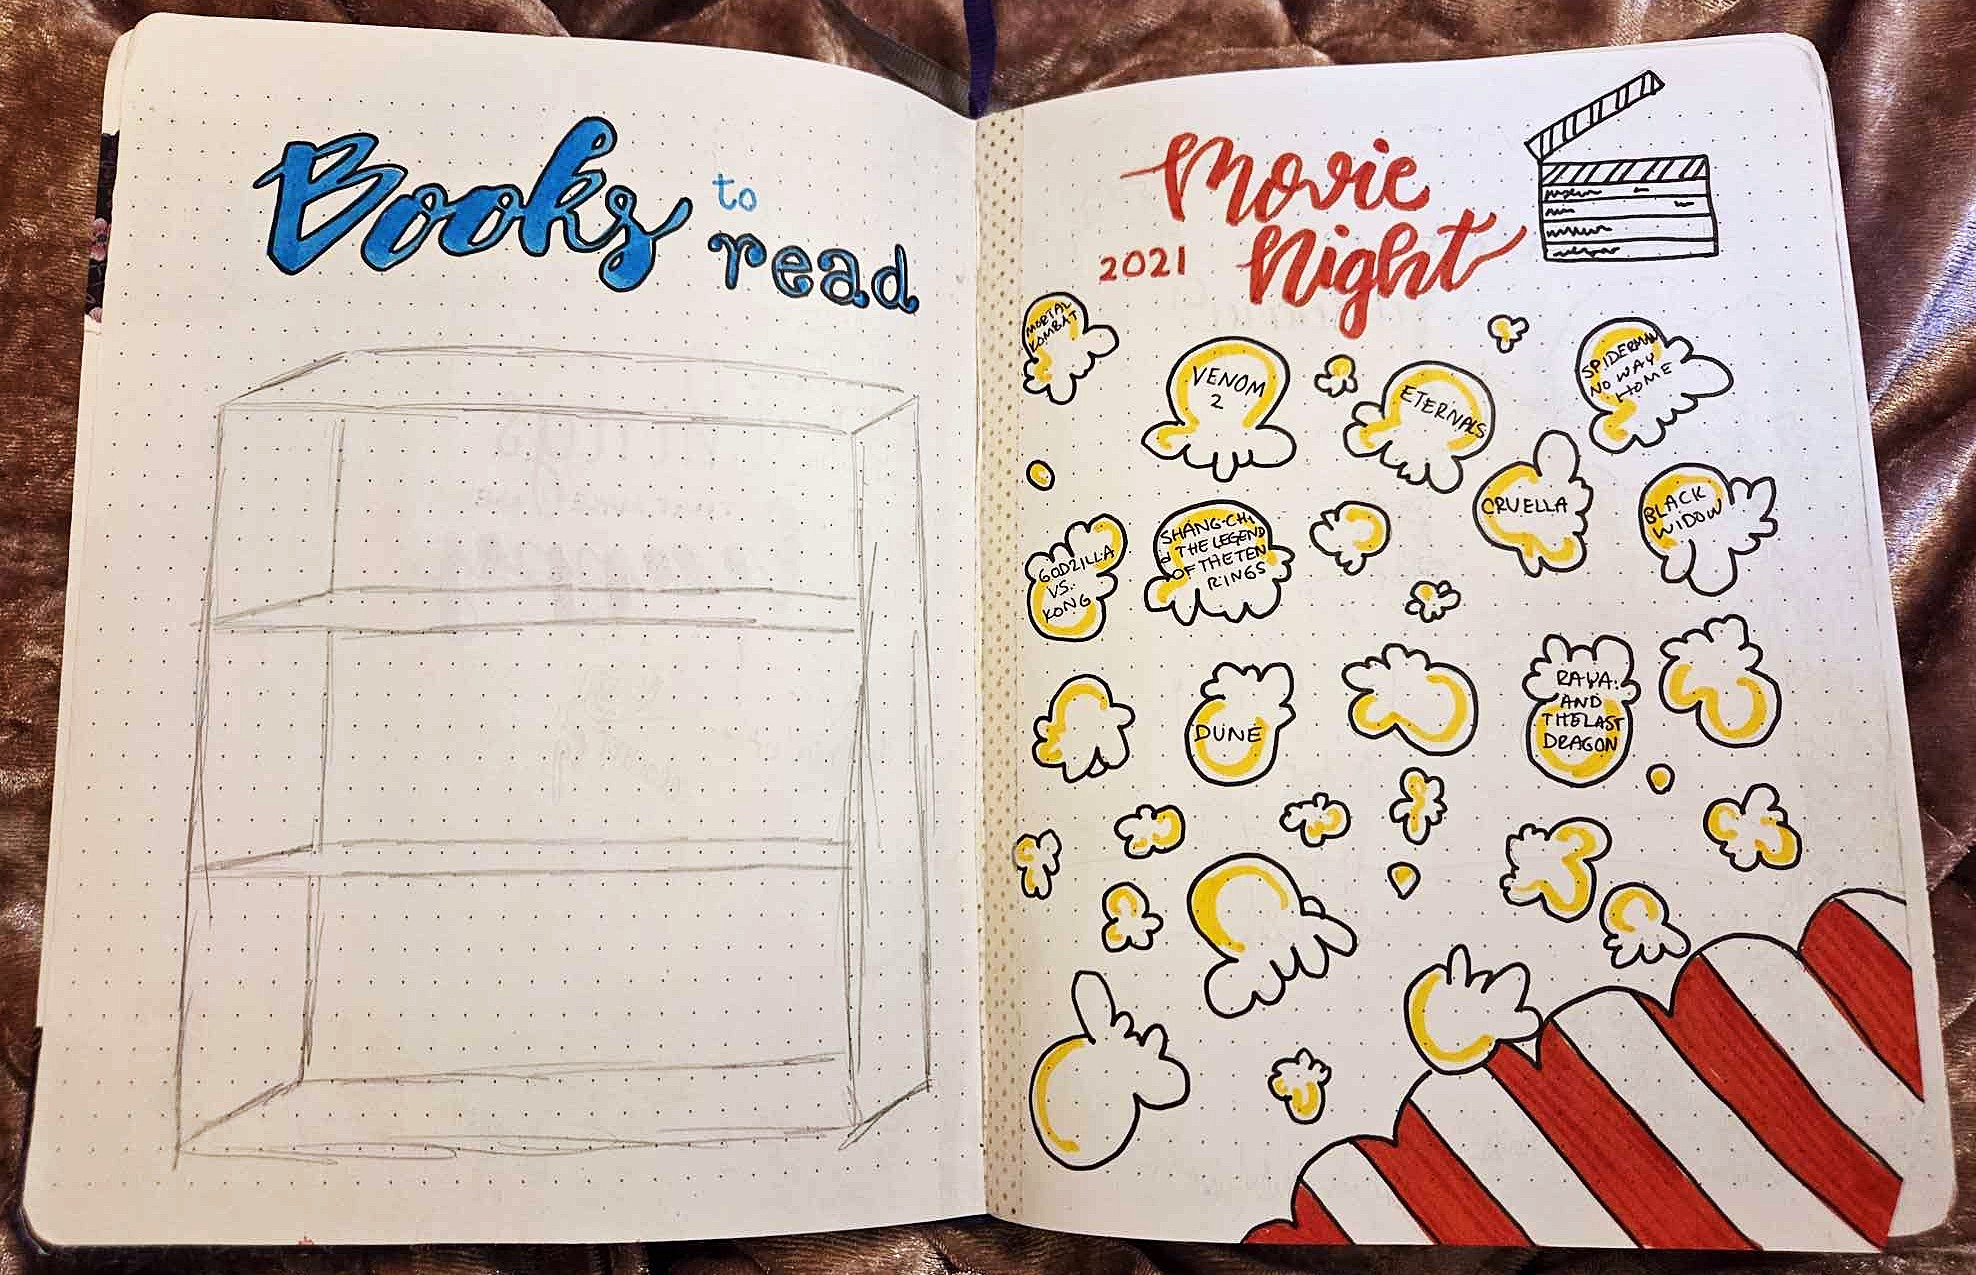 Books to
read
Movie
2021 Night
MORTAL
KOMBAT
VENOM
2
ETERNALS
SPIDERMAN
NO WAY
HOME
CRUELLA
BLACK
WIDOW
GODZILLA
VS.
KONG
SHANG-CHI
THE LEGEND
OF THE TEN
RINGS
DUNE
RAYA
AND
THE LAST
DRAGON